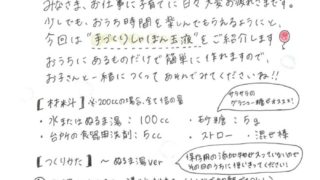 みなさま、お仕事に子育てに日々大変お疲れさまです。
少しでも、おうち時間を楽しんでもらえるようにと、
今回は"手づくりしゃぼん玉液"をご紹介します
おうちにあるものだけで簡単に作れますので、
お子さんと一緒につくってあそんでみてくださいね!!
【材料】※200ccの場合、全て倍の量
サラサラの
グラニュー糖がオススメ!
・水またはぬるま湯:100cc ・砂糖:5g
・台所の食器用洗剤:5cc ・ストロー ・混ぜ棒
【つくりかた】~ぬるま湯ver
保存用の添加物が入っていないので
その日のうちに使いきってください!